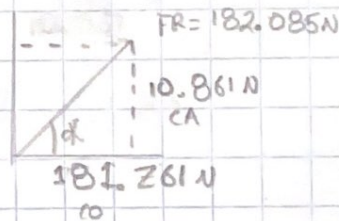 FR= 182.085N
10.861N
CA
α
181.761N
CO